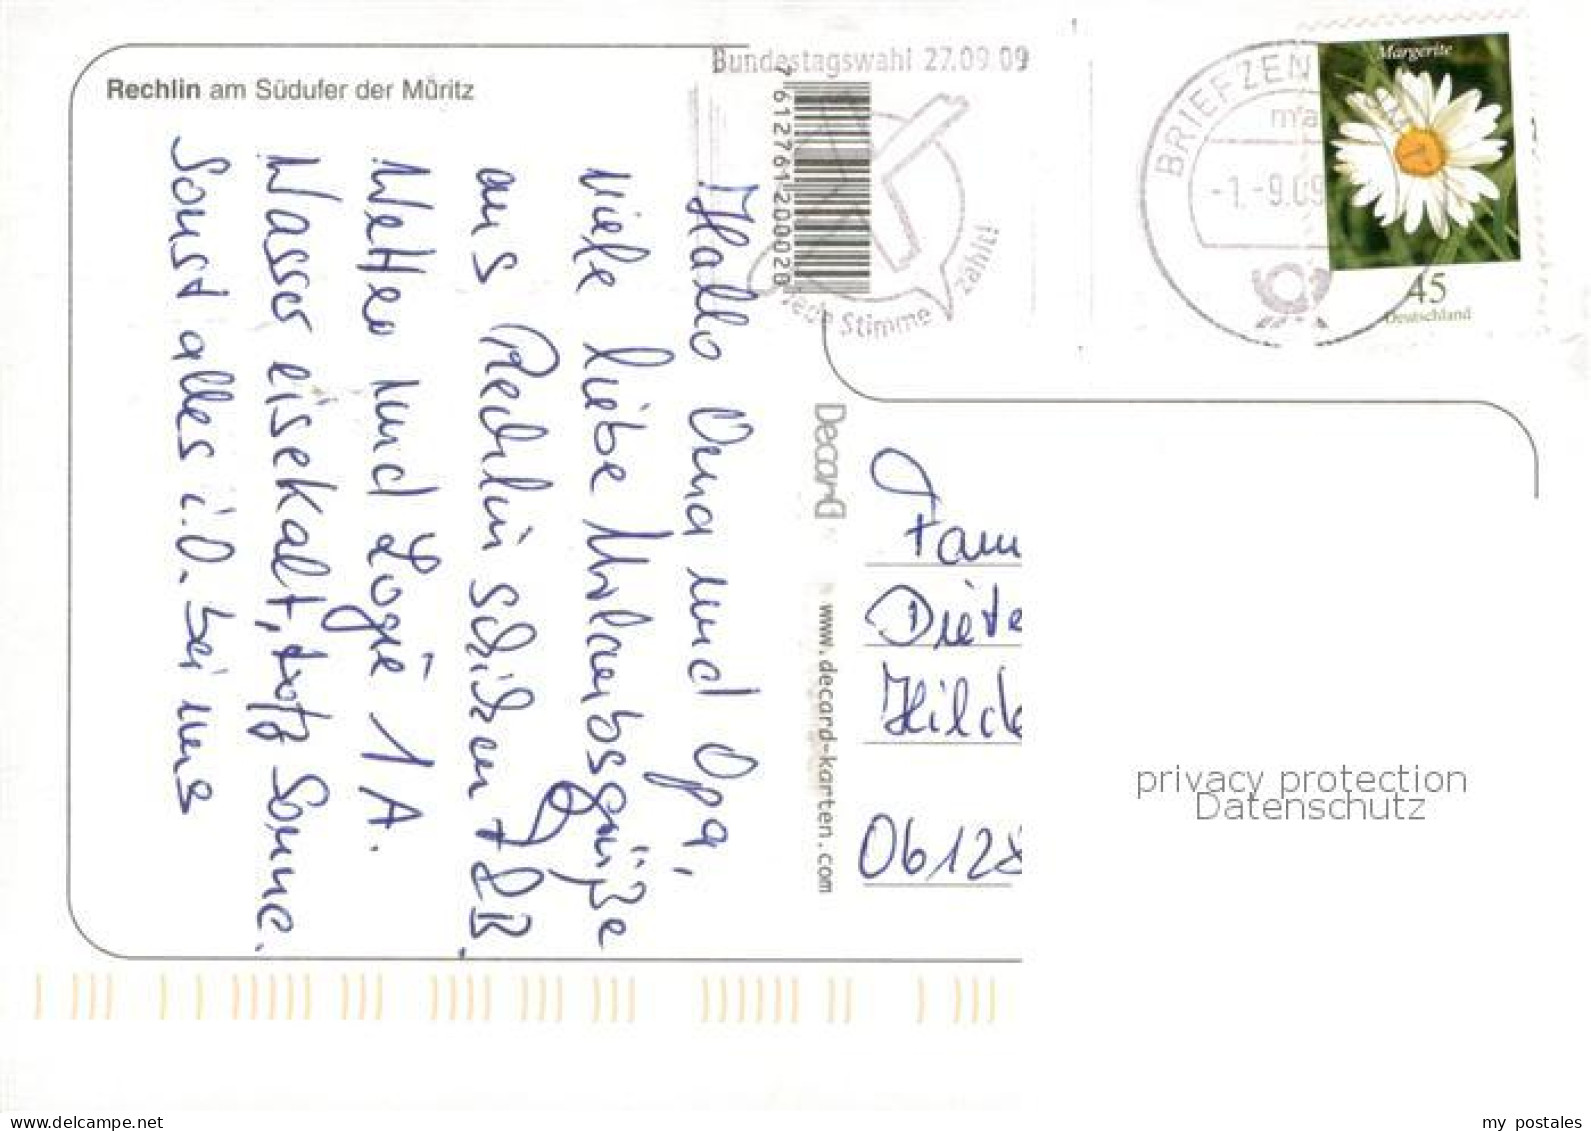 Rechlin am Südufer der Müritz
Hallo Oma und Opa,
viele liebe Urlaubsgrüße
aus Rechlin schicken
Wetter und Logie 1A.
Wasser eisekalt, trotz Sonne.
Sonst alles i.O. bei uns
Bundestagswahl 27.09.09
Jede Stimme zählt!
7 612761 200028
BRIEFZEN
-1.-9.09
Margerite
45
Deutschland
DecarD
www.decard-karten.com
Fam
Diete
Hilde
06128
privacy protection
Datenschutz
www.delcampe.net
my_postales